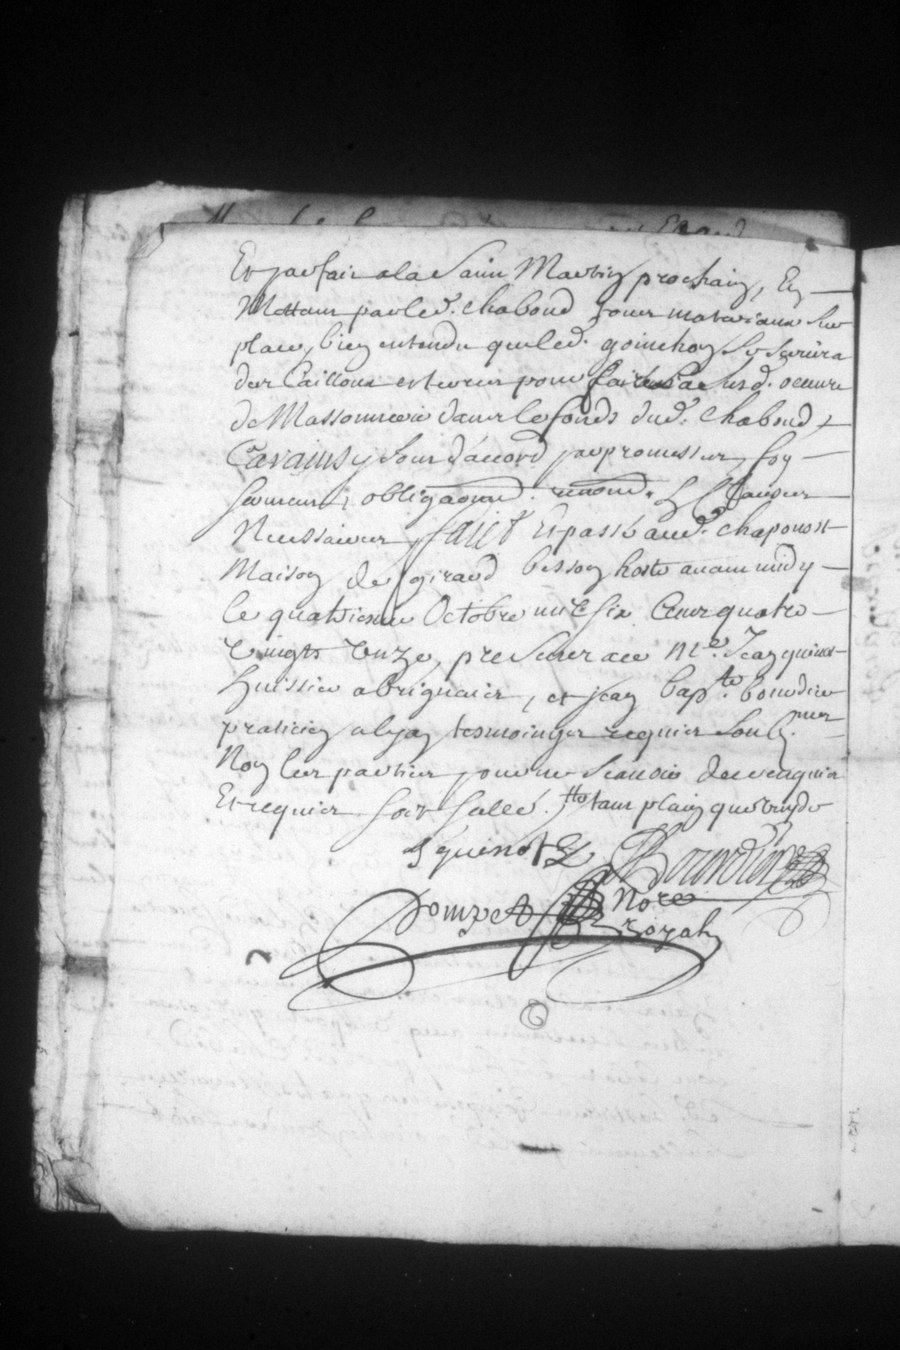 Et parfair a la Saint Martin prochain, En
Mettant par led. chaboud Jouer matereaux sur
place, bien entendu que led. goinchon Se Servira
des Cailloux et terres pour faire Lad. oeuure
de Massonnerie dans le fonds dud. Chaboud,
Car ainsy sont d'accord par promesses, foy
serment, obligaond. renond. & Clauses
Necessaires faict Et passé aud. chaponost
Maison de giraud besson hoste auant midy
le quatriesme Octobre mil six Cent quatre
Vingts Unze, presents a ce Me. Jean quinot
huissier a brignaix, et jean bapte. bourdin
praticien a lyon tesmoings requis Soub.nes
Non les parties pour ne Scauoir de ce enquis
Et requis soit sellé. tant plain que vuyde
quinot
Bourdin
pompet Nore
Royal